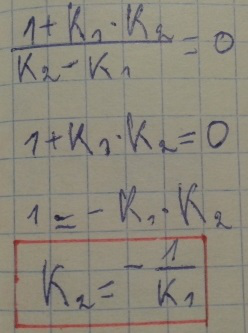 (1 + K₁ · K₂) / (K₂ - K₁) = 0
1 + K₁ · K₂ = 0
1 = - K₁ · K₂
K₂ = - 1/K₁